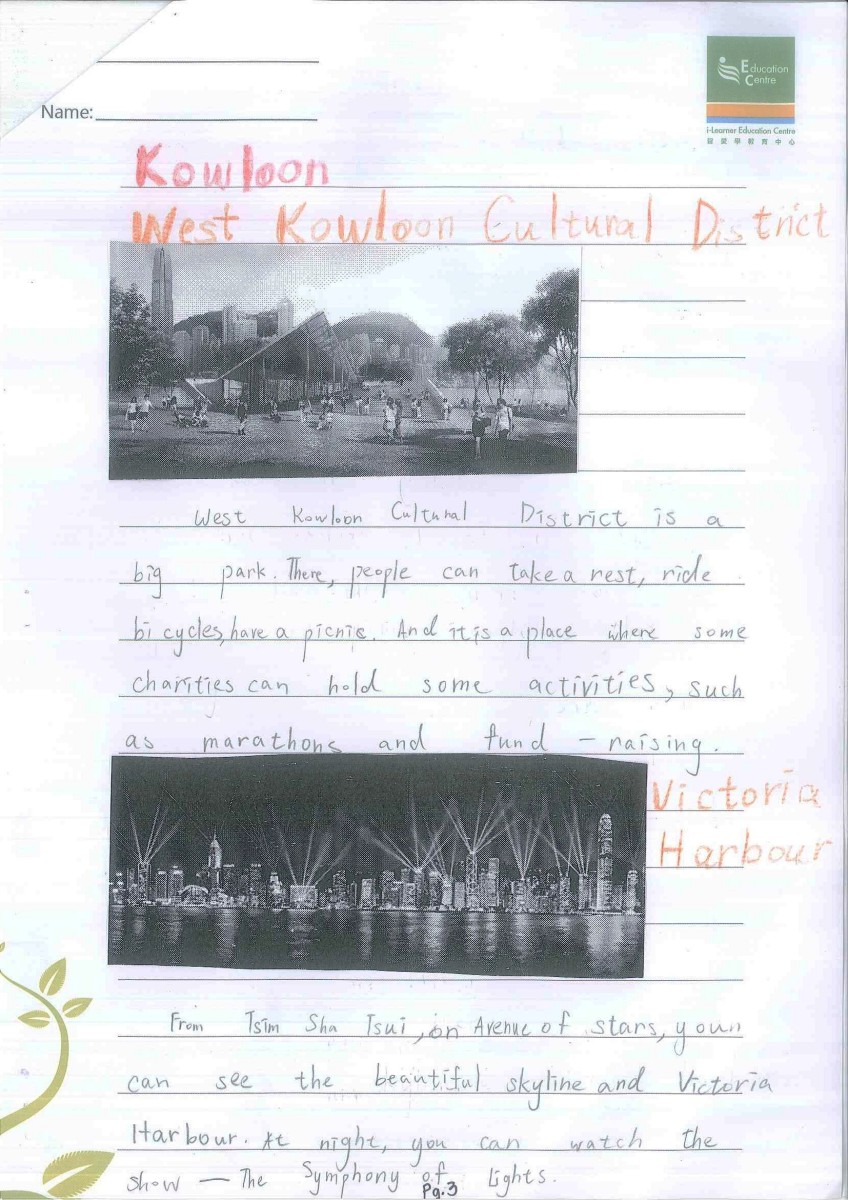 Education
Centre
i-Learner Education Centre
Name:
Kowloon
West Kowloon Cultural District
West Kowloon Cultural District is a
big park. There, people can take a rest, ride
bicycles, have a picnic. And it is a place where some
charities can hold some activities, such
as marathons and fund-raising.
Victoria
Harbour
From Tsim Sha Tsui, on Avenue of stars, you
can see the beautiful skyline and Victoria
Harbour. At night, you can watch the
show — The Symphony of Lights.
Pg.3